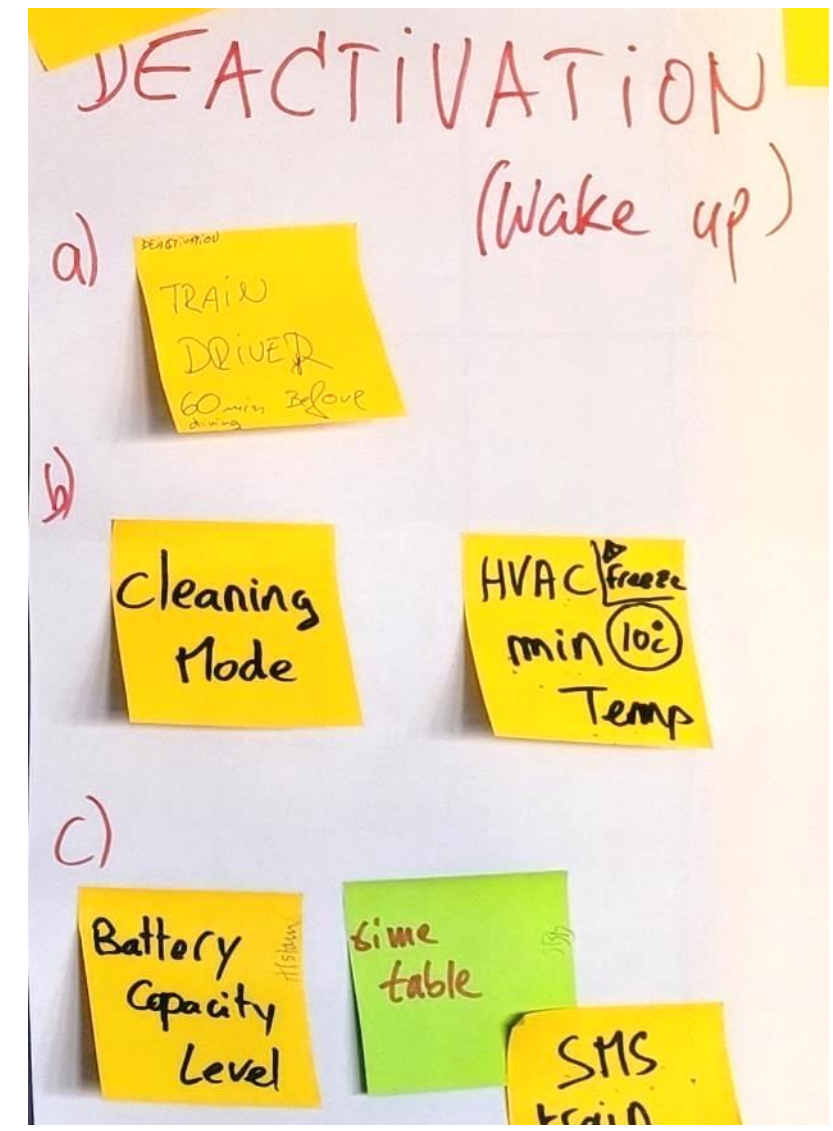 DEACTIVATION
(Wake up)
a)
DEACTIVATION
TRAIN
DRIVER
60 min Before
driving
b)
Cleaning
Mode
HVAC freeze
min 10°C
Temp
c)
Battery
Capacity
Level
Alstom
time
table
SMS
train